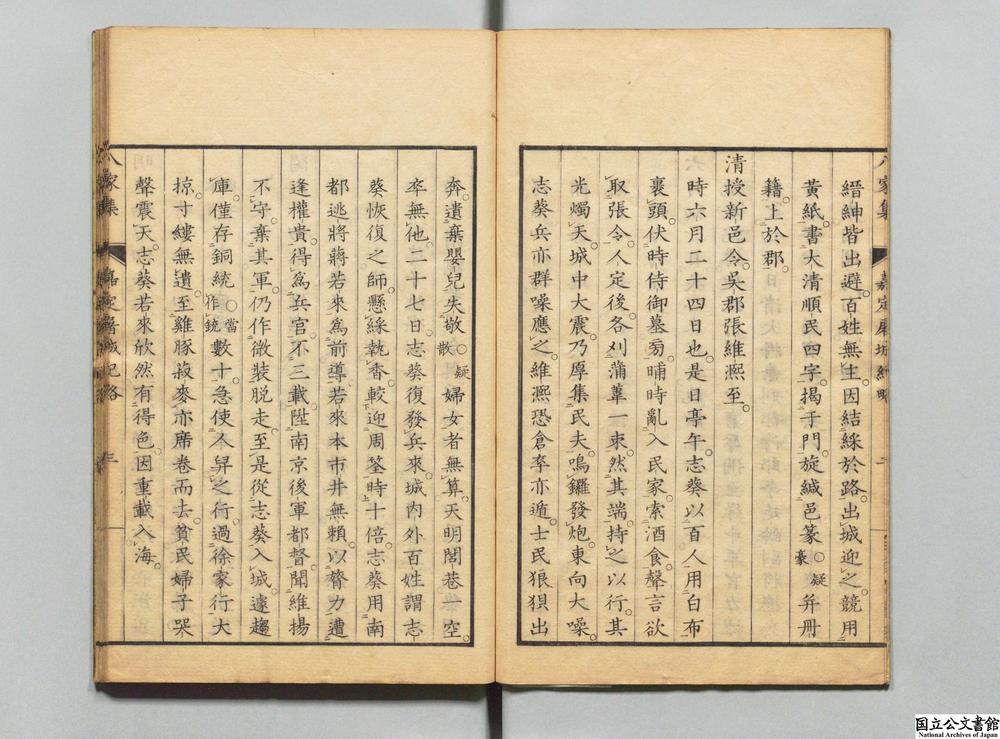 縉紳皆出避百姓無主因結綵於路出城迎之競用
黃紙書大清順民四字揭于門旋緘邑篆○疑豪幷冊
籍上於郡
清授新邑令吳郡張維熈至
時六月二十四日也是日亭午志葵以百人用白布
裹頭伏時侍御墓旁晡時亂入民家索酒食聲言欲
取張令人定後各刈蒲葦一束然其端持之以行其
光燭天城中大震乃厚集民夫鳴鑼發炮東向大噪
志葵兵亦群噪應之維熈恐倉卒亦遁士民狼狽出
奔遺棄嬰兒失敬○疑散婦女者無算天明閭巷一空
卒無他二十七日志葵復發兵來城內外百姓謂志
葵恢復之師懸綵執香較迎周筌時十倍志葵用南
都逃將蔣若來爲前導若來本市井無賴以膂力遭
逢權貴得爲兵官不三載陞南京後軍都督聞維揚
不守棄其軍仍作微裝脫走至是從志葵入城遽趨
庫僅存銅統○當作銃數十急使人舁之行過徐家行大
掠寸縷無遺至雞豚菽麥亦席卷而去貧民婦子哭
聲震天志葵若來欣然有得色因重載入海
八家集
嘉定屠城紀略
三
国立公文書館
National Archives of Japan